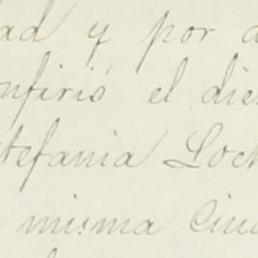 ad y por
nfirió el die
stefania Loch
misma Ciu